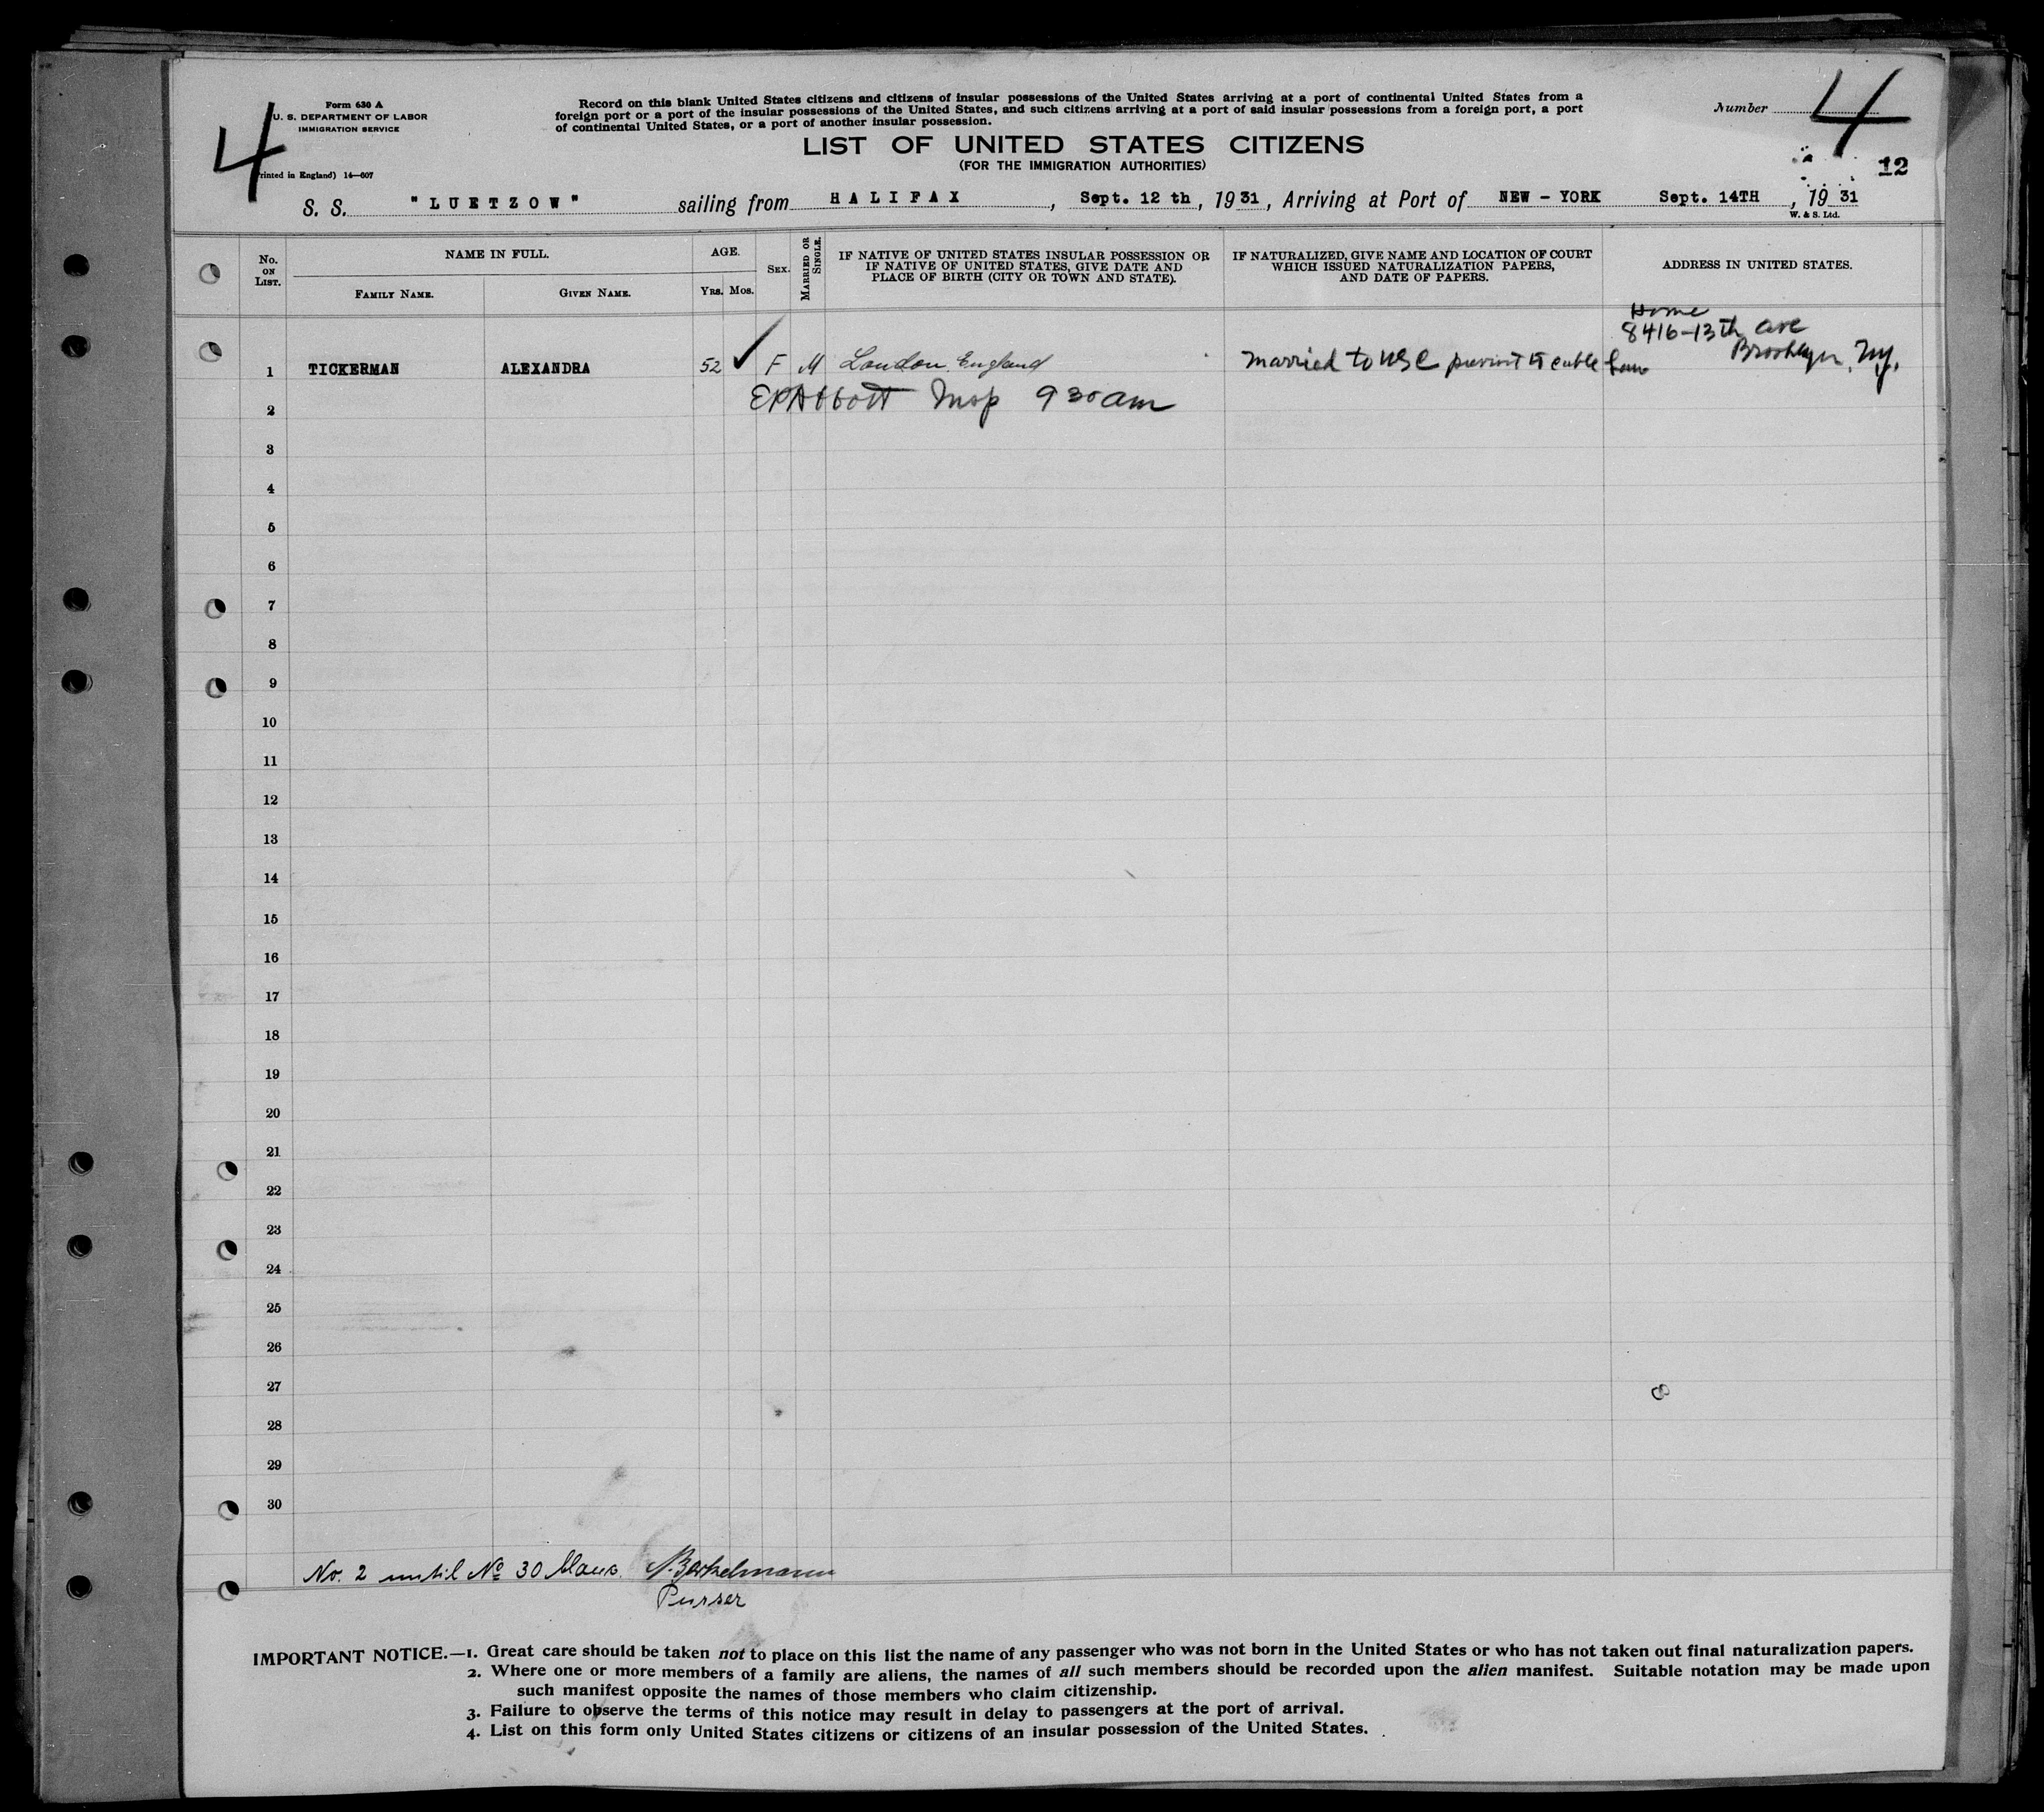 4
Form 630 A
U. S. DEPARTMENT OF LABOR
IMMIGRATION SERVICE
rinted in England) 14—607
Record on this blank United States citizens and citizens of insular possessions of the United States arriving at a port of continental United States from a
foreign port or a port of the insular possessions of the United States, and such citizens arriving at a port of said insular possessions from a foreign port, a port
of continental United States, or a port of another insular possession.
Number 4
LIST OF UNITED STATES CITIZENS
(FOR THE IMMIGRATION AUTHORITIES)
12
S. S. "LUETZOW" sailing from HALIFAX, Sept. 12 th, 1931, Arriving at Port of NEW - YORK Sept. 14TH, 1931
W. & S. Ltd.
No. ON LIST.
NAME IN FULL.
FAMILY NAME.
GIVEN NAME.
AGE.
YRS. MOS.
SEX.
MARRIED OR SINGLE.
IF NATIVE OF UNITED STATES INSULAR POSSESSION OR
IF NATIVE OF UNITED STATES, GIVE DATE AND
PLACE OF BIRTH (CITY OR TOWN AND STATE).
IF NATURALIZED, GIVE NAME AND LOCATION OF COURT
WHICH ISSUED NATURALIZATION PAPERS,
AND DATE OF PAPERS.
ADDRESS IN UNITED STATES.
Home
8416-13th Ave
Brooklyn, N.Y.
1 TICKERMAN ALEXANDRA 52 ✓ F M London, England Married to USC to cable law
2 EPAbbott Insp 9 30 am
3
4
5
6
7
8
9
10
11
12
13
14
15
16
17
18
19
20
21
22
23
24
25
26
27
28
29
30
8
No. 2 until No 30
Purser
IMPORTANT NOTICE.—1. Great care should be taken not to place on this list the name of any passenger who was not born in the United States or who has not taken out final naturalization papers.
2. Where one or more members of a family are aliens, the names of all such members should be recorded upon the alien manifest. Suitable notation may be made upon
such manifest opposite the names of those members who claim citizenship.
3. Failure to observe the terms of this notice may result in delay to passengers at the port of arrival.
4. List on this form only United States citizens or citizens of an insular possession of the United States.